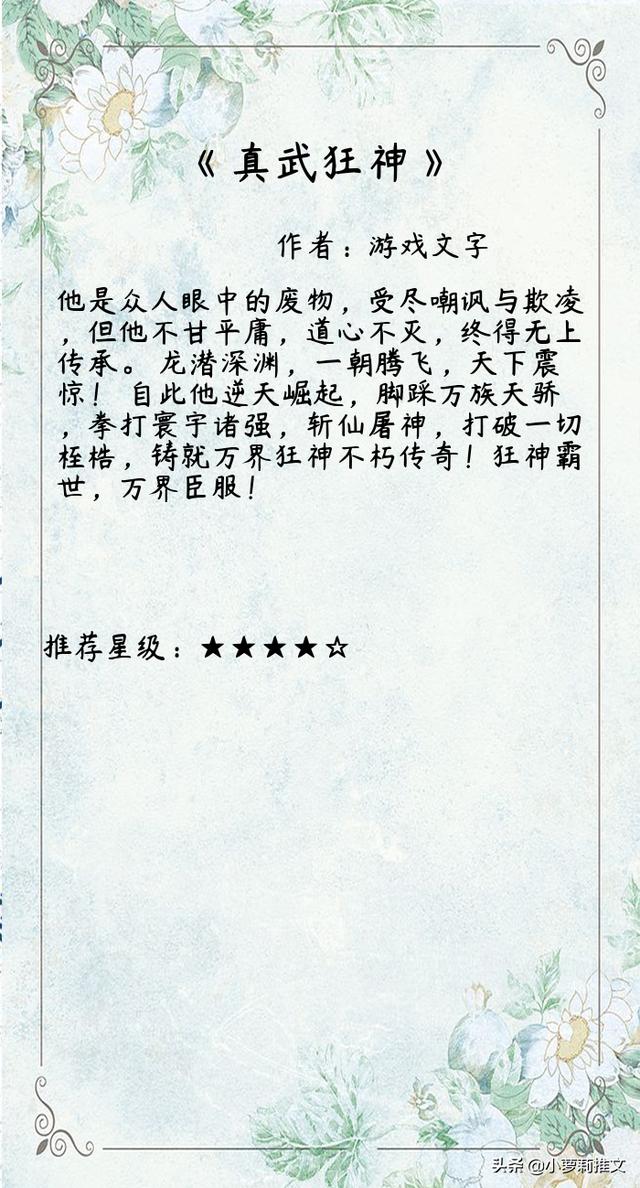 《真武狂神》
作者：游戏文字
他是众人眼中的废物，受尽嘲讽与欺凌
，但他不甘平庸，道心不灭，终得无上
传承。龙潜深渊，一朝腾飞，天下震
惊！ 自此他逆天崛起，脚踩万族天骄
，拳打寰宇诸强，斩仙屠神，打破一切
桎梏，铸就万界狂神不朽传奇！狂神霸
世，万界臣服！
推荐星级：★★★★☆
头条 @小萝莉推文